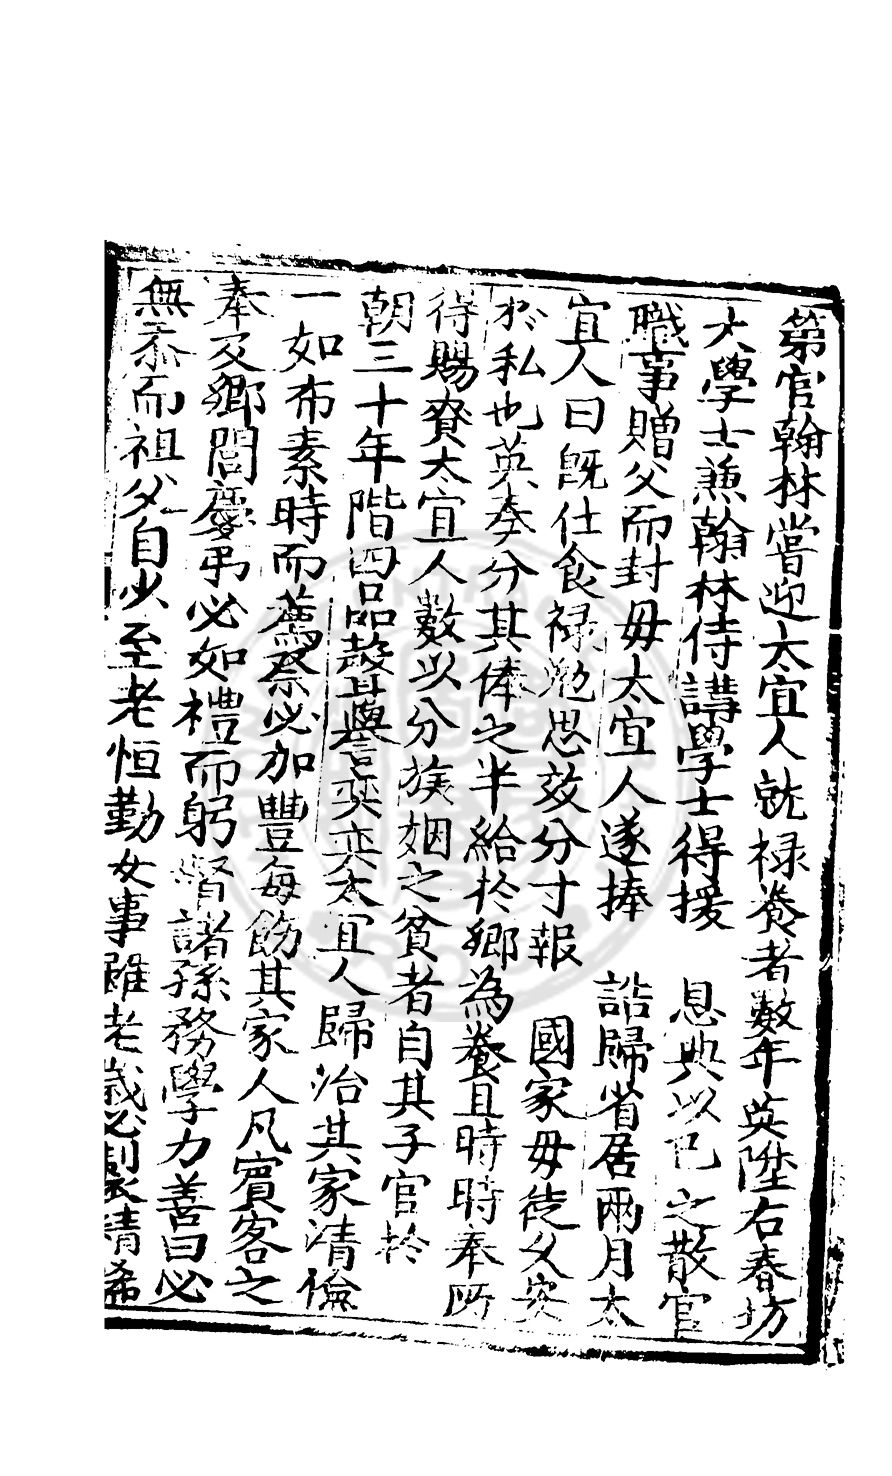 第官翰林嘗迎太宜人就禄養者數年英陞右春坊
大學士兼翰林侍講學士得援　恩典以已之散官
職事贈父而封毋太宜人遂捧　誥歸省居兩月太
宜人曰旣仕食禄勉思效分寸報　國家毋徒久安
於私也英奉分其俸之半給於鄉為養且時時奉所
得賜賚太宜人數以分族姻之貧者自其子官於
朝三十年階四品聲譽奕奕太宜人歸治其家清儉
一如布素時而薦祭必加豐每飭其家人凡賓客之
奉及鄉閭慶弔必如禮而躬督諸孫務學力善曰必
無忝而祖父自少至老恒勤女事雖老歲必製精絺